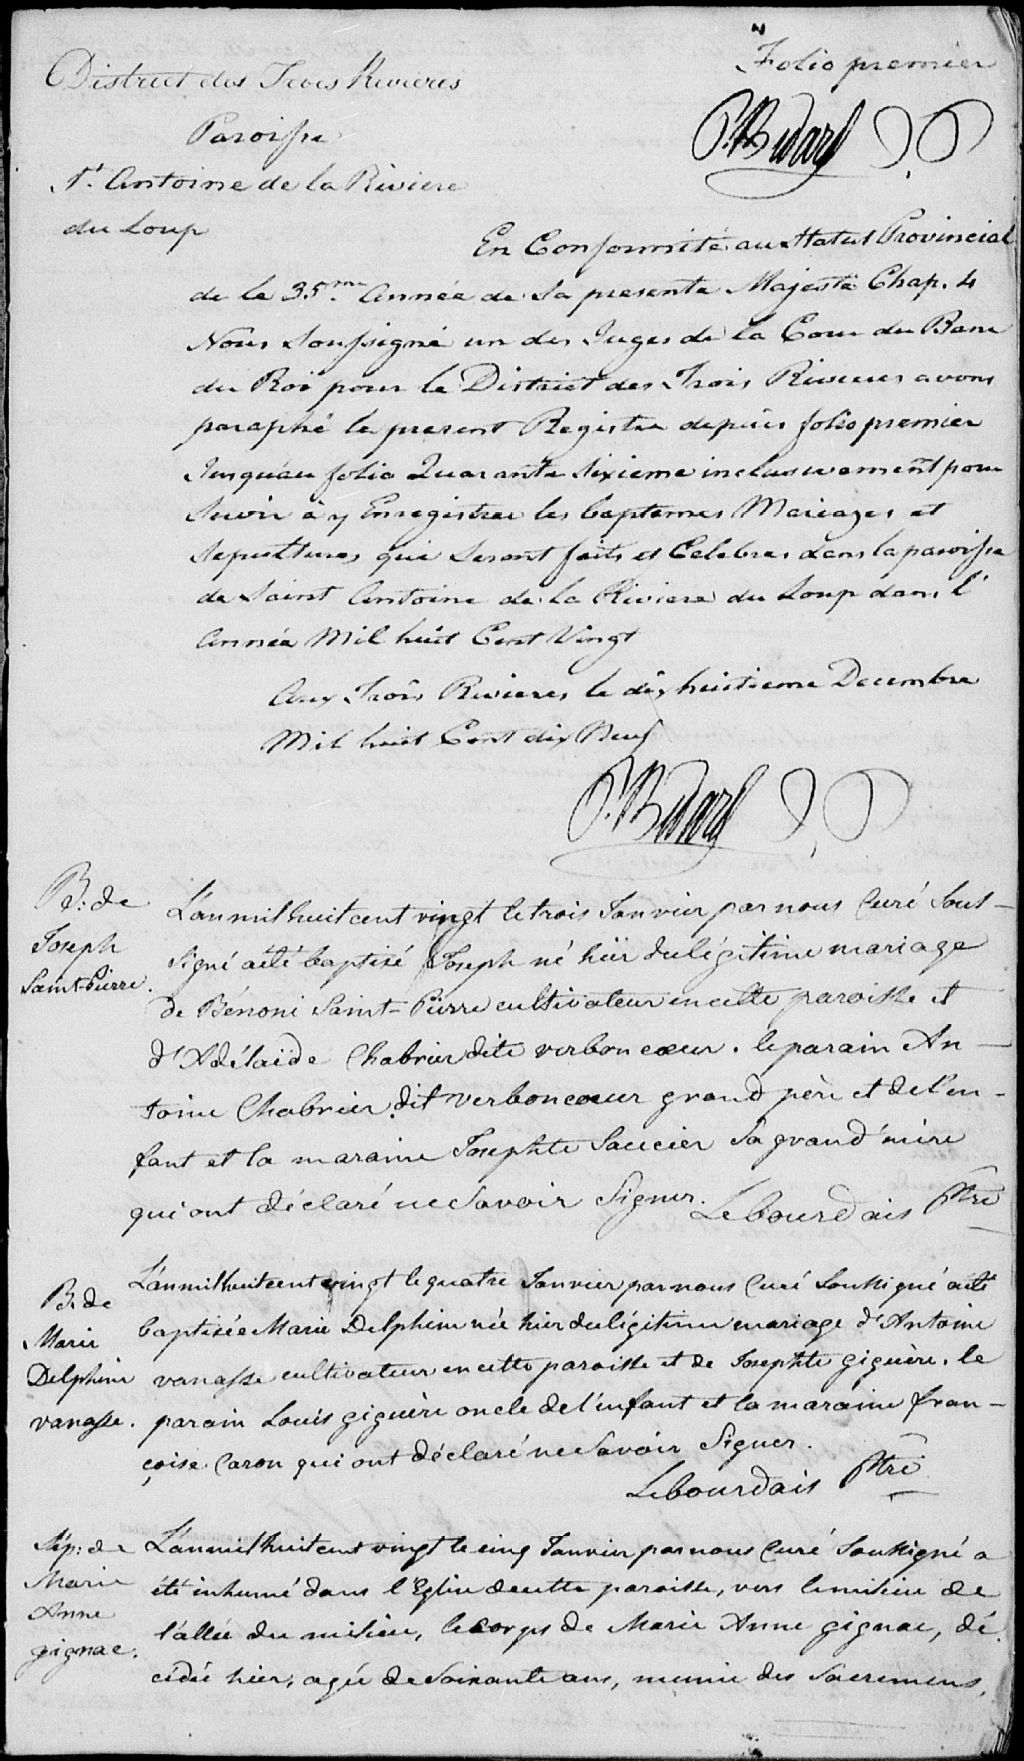 Folio premier
District des Trois Rivieres
P. Bedard
Paroisse
St. Antoine de la Riviere
du Loup
En Conformité au Statut Provincial
de la 35.me Année de Sa presente Majesté Chap. 4
Nous Soussigné un des Juges de la Cour du Banc
du Roi pour le District des Trois Rivieres avons
paraphé le present Registre depuis folio premier
Jusquau folio Quarante Sixieme inclusivement pour
Servir à y Enregistrer les baptemes Mariages et
Sepultures qui Seront faits et Celebres dans la paroisse
de Saint Antoine de la Riviere du Loup dans l'
Année Mil huit Cent Vingt
Aux Trois Rivieres le dix huitieme Decembre
Mil huit Cent dix Neuf
P. Bedard
B: de
Joseph
Saint-Pierre.
L'an mil huit cent vingt le trois Janvier par nous Curé Sous-
Signé a été baptisé Joseph né hier du légitime mariage
de Bénoni Saint-Pierre cultivateur en cette paroisse et
d'Adélaïde Chabrier dite verboncoeur. le parain An-
toine Chabrier dit verboncoeur grand père et de l'en-
fant et la maraine Josephte Saucier Sa grand'mère
qui ont déclaré ne Savoir Signer. Lebourdais Ptre
B. de
Marie
Delphine
vanasse.
L'an mil huit cent vingt le quatre Janvier par nous Curé Soussigné a été
baptisée Marie Delphine née hier du légitime mariage d'Antoine
vanasse cultivateur en cette paroisse et de Josephte giguère. le
parain Louis giguère oncle de l'enfant et la maraine fran-
çoise Caron qui ont déclaré ne Savoir Signer.
Lebourdais Ptre
Sép: de
Marie
Anne
gignac.
L'an mil huit cent vingt le cinq Janvier par nous Curé Soussigné a
été inhumé dans l'Eglise de cette paroisse, vers le milieu de
l'allée du milieu, le corps de Marie Anne gignac, dé
cédée hier, agée de Soixante ans, munie des Sacremens,